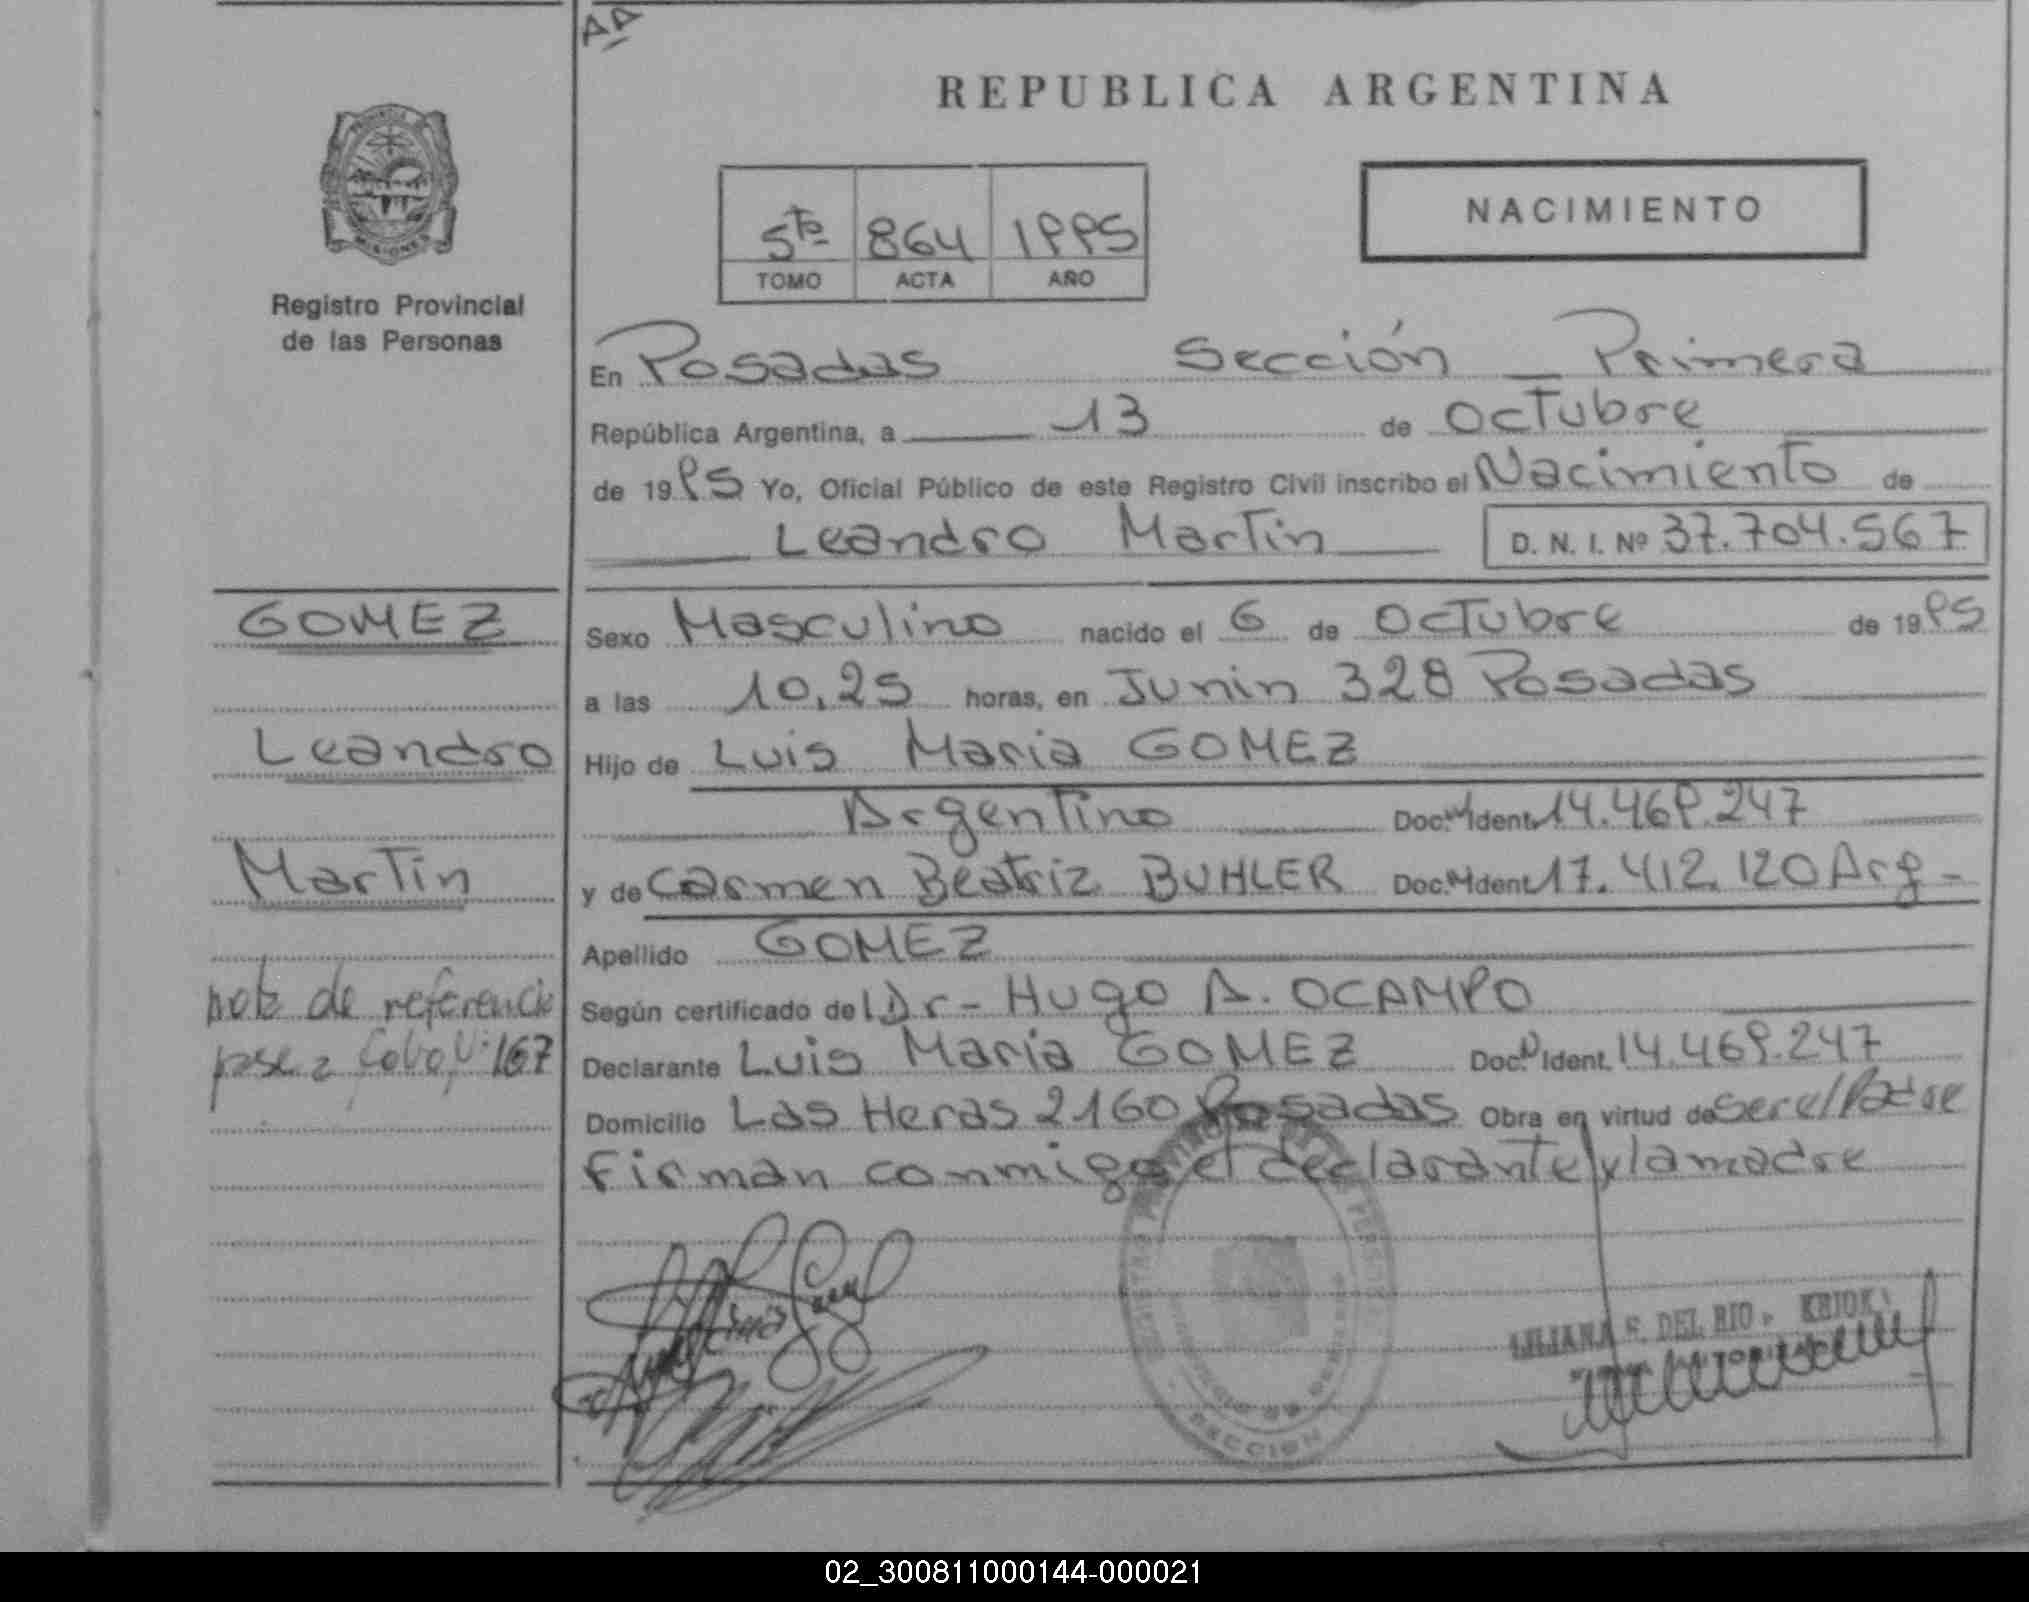 AA
REPUBLICA ARGENTINA
MISIONES
Registro Provincial
de las Personas
5to 864 1995
TOMO ACTA AÑO
NACIMIENTO
En Posadas Sección Primera
República Argentina, a 13 de Octubre
de 19 95 Yo, Oficial Público de este Registro Civil inscribo el Nacimiento de
Leandro Martin D. N. I. Nº 37.704.567
GOMEZ
Leandro
Martin
nota de referencia
pase a folio Nº 167
Sexo Masculino nacido el 6 de Octubre de 19 95
a las 10,25 horas, en Junin 328 Posadas
Hijo de Luis Maria GOMEZ
Argentino Doc. N Ident. 14.469.247
y de Carmen Beatriz BUHLER Doc. N Ident. 17.412.120 Arg-
Apellido GOMEZ
Según certificado del Dr- Hugo A. OCAMPO
Declarante Luis Maria GOMEZ Doc. N Ident. 14.469.247
Domicilio Las Heras 2160 Posadas Obra en virtud de ser el Padre
Firman conmigo el declarante y la madre
LILIANA F. DEL RIO
SECCION
02_300811000144-000021